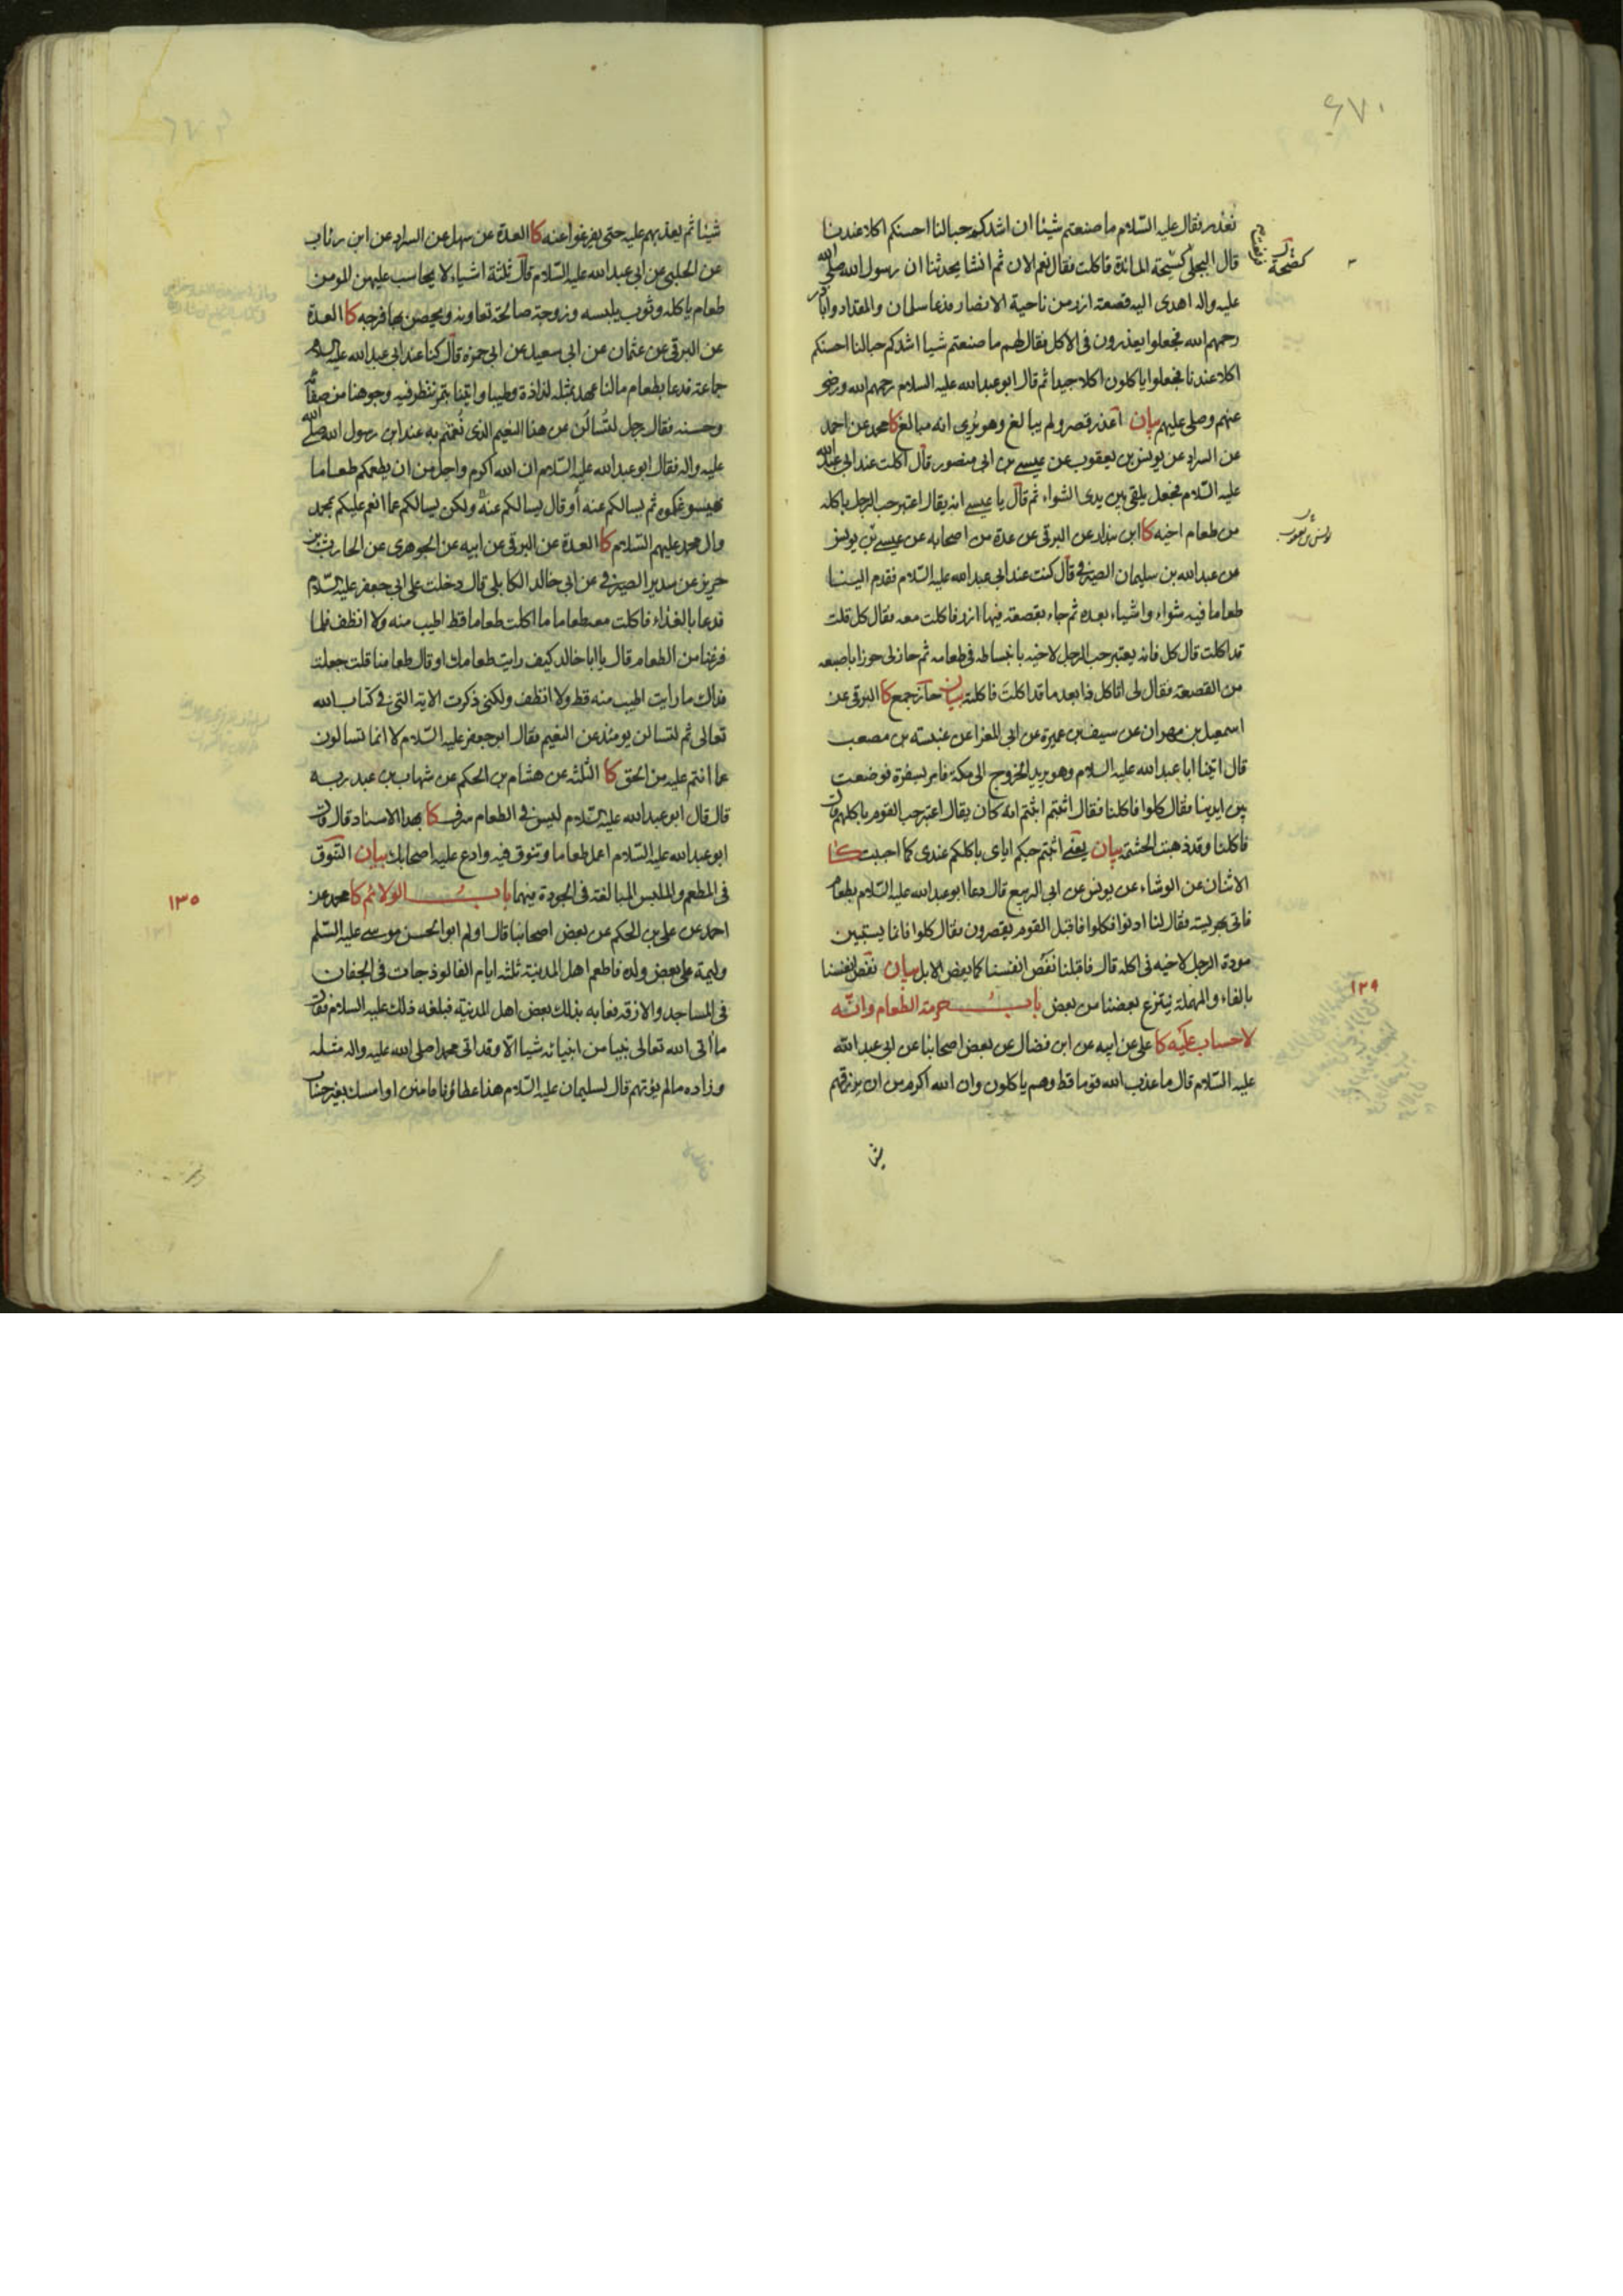 ٤٧٠
نعذر فقال عليه السّلام ما صنعتم شيئا ان اشدكم حبا لنا احسنكم اكلا عندنا
قال البجلي كسّحة المائدة فاكلت فقال نعم الان ثم انشا يحدثنا ان رسول الله صلى الله
عليه واله اهدى اليه قصعة ارز من ناحية الانصار فدعا سلمان والمقداد وابا ذر
رحمهم الله فجعلوا يعذرون فى الاكل فقال لهم ما صنعتم شيا اشدكم حبا لنا احسنكم
اكلا عندنا فجعلوا ياكلون اكلا جيدا ثم قال ابو عبد الله عليه السلام رحمهم الله ورضى
عنهم وصلى عليهم بيان اعذر قصر ولم يبالغ وهو يُرى انه مبالغ كا محمد عن احمد
عن السراد عن يونس بن يعقوب عن عيسى بن ابى منصور قال اكلت عند ابى عبد الله
عليه السّلام فجعل يلقى بين يدى الشواء ثم قال يا عيسى انه يقال اعتبر حب الرجل باكله
من طعام اخيه كا ابن بندار عن البرقى عن عدة من اصحابه عن عيسى بن يونس
عن عبد الله بن سليمان الصيرفى قال كنت عند ابى عبد الله عليه السّلام فقدم الينا
طعاما فيه شواء واشياء بعده ثم جاء بقصعة فيها ارز فاكلت معه فقال كل قلت
قد اكلت قال كل فانه يعتبر حب الرجل لاخيه بانبساطه فى طعامه ثم حاز لى حوزا باصبعه
من القصعة فقال لى لتاكلن ذا بعد ما قد اكلت فاكلته بيان حاز جمع كا البرقى عن
اسمعيل بن مهران عن سيف بن عميرة عن ابى المغرا عن عنبسة بن مصعب
قال اتينا ابا عبد الله عليه السلام وهو يريد الخروج الى مكة فامر بسفرة فوضعت
بين ايدينا فقال كلوا فاكلنا فقال اثبتم اثبتم انه كان يقال اعتبر حب القوم باكلهم قال
فاكلنا وقد ذهبت الحشمة بيان يعنى اثبتم حبكم اياى باكلكم عندى كما احببت كا
الاثنان عن الوشاء عن يونس عن ابى الربيع قال دعا ابو عبد الله عليه السّلام بطعام
فاتى بهريسة فقال لنا ادنوا فكلوا فاقبل القوم يقصرون فقال كلوا فانما يستبين
مودة الرجل لاخيه فى اكله قال فاقبلنا نغص انفسنا كما يغص الابل بيان نغص انفسنا
بالغاء والمهملة نينزع بعضنا من بعض باب حرمة الطعام وانّه
لا حساب عليه كا على عن ابيه عن ابن فضال عن بعض اصحابنا عن ابى عبد الله
عليه السّلام قال ما عذب الله قوما قط وهم ياكلون وان الله اكرم من ان يرزقهم
شيئا
يونس بن يعقوب
١٣٩
شيئا ثم يعذبهم عليه حتى يفرغوا عنه كا العدة عن سهل عن السراد عن ابن رئاب
عن الحلبى عن ابى عبد الله عليه السّلام قال ثلثة اشياء لا يحاسب عليهن المومن
طعام ياكله وثوب يلبسه وزوجة صالحة تعاونه ويحصن بها فرجه كا العدة
عن البرقى عن عثمان عن ابى سعيد عن ابى حمزة قال كنا عند ابى عبد الله عليه السلم
جماعة فدعا بطعام ما لنا عهد بمثله لذاذة وطيبا واتينا بتمر ننظر فيه وجوهنا من صفائه
وحسنه فقال رجل لتسالن عن هذا النعيم الذى نُعمتم به عند ابن رسول الله صلى الله
عليه واله فقال ابو عبد الله عليه السّلام ان الله اكرم واجل من ان يطعمكم طعاما
فيسوغكموه ثم يسالكم عنه او قال يسالكم عنه ولكن يسالكم عما انعم عليكم بمحمد
وال محمد عليهم السّلام كا العدة عن البرقى عن ابيه عن الجوهرى عن الحارث بن
حريز عن سدير الصيرفى عن ابى خالد الكابلى قال دخلت على ابى جعفر عليه السّلام
فدعا بالغذاء فاكلت معه طعاما ما اكلت طعاما قط اطيب منه ولا انظف فلما
فرغنا من الطعام قال يا ابا خالد كيف رايت طعامك او قال طعامنا قلت جعلت
فداك ما رايت اطيب منه قط ولا انظف ولكنى ذكرت الاية التى فى كتاب الله
تعالى ثم لتسالن يومئذ عن النعيم فقال ابو جعفر عليه السّلام لا انما تسالون
عما انتم عليه من الحق كا الثلثة عن هشام بن الحكم عن شهاب بن عبد ربه
قال قال ابو عبد الله عليه السّلام ليس فى الطعام سرف كا بهذا الاسناد قال قال
ابو عبد الله عليه السّلام اعمل طعاما وتنوق فيه وادع عليه اصحابك بيان التنوّق
فى المطعم والملبس المبالغة فى الجودة فيهما باب الولائم كا محمد عن
احمد عن على بن الحكم عن بعض اصحابنا قال اولم ابو الحسن موسى عليه السّلم
وليمة على بعض ولده فاطعم اهل المدينة ثلثة ايام الفالوذجات فى الجفان
فى المساجد والازقة فعابه بذلك بعض اهل المدينة فبلغه ذلك عليه السلام فقال
ما اتى الله تعالى نبيا من انبيائه شيا الّا وقد اتى محمدا صلى الله عليه واله مثله
وزاده ما لم يؤتهم قال لسليمان عليه السّلام هذا عطاؤنا فامنن او امسك بغير حساب
١٣٥